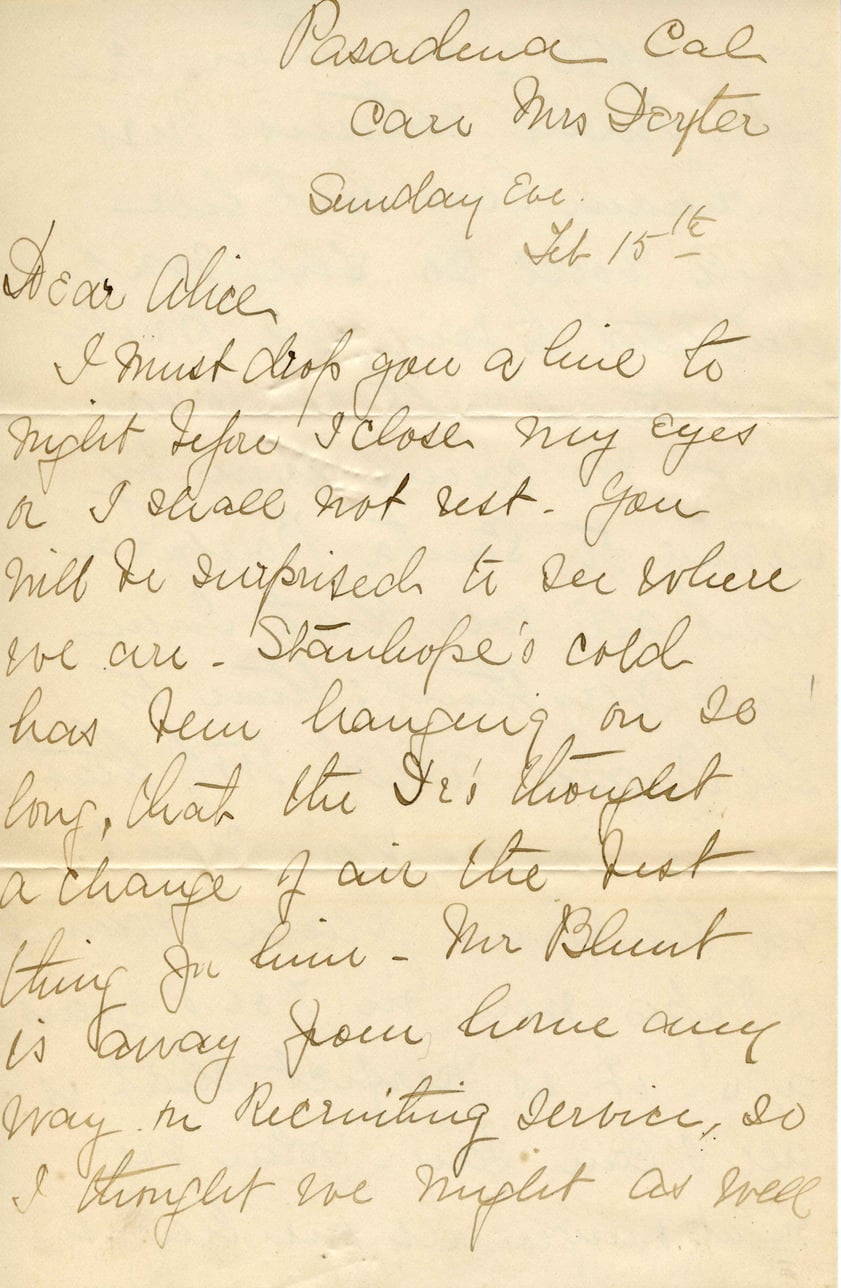 Pasadena Cal
Care Mrs Dexter
Sunday Eve.
Feb 15th
Dear Alice,
I must drop you a line to
night before I close my eyes
or I shall not rest - You
will be surprised to see where
we are - Stanhope's cold
has been hanging on so
long, that the Dr's thought
a change of air the best
thing for him - Mr Blunt
is away from home any
way on Recruiting service, so
I thought we might as well